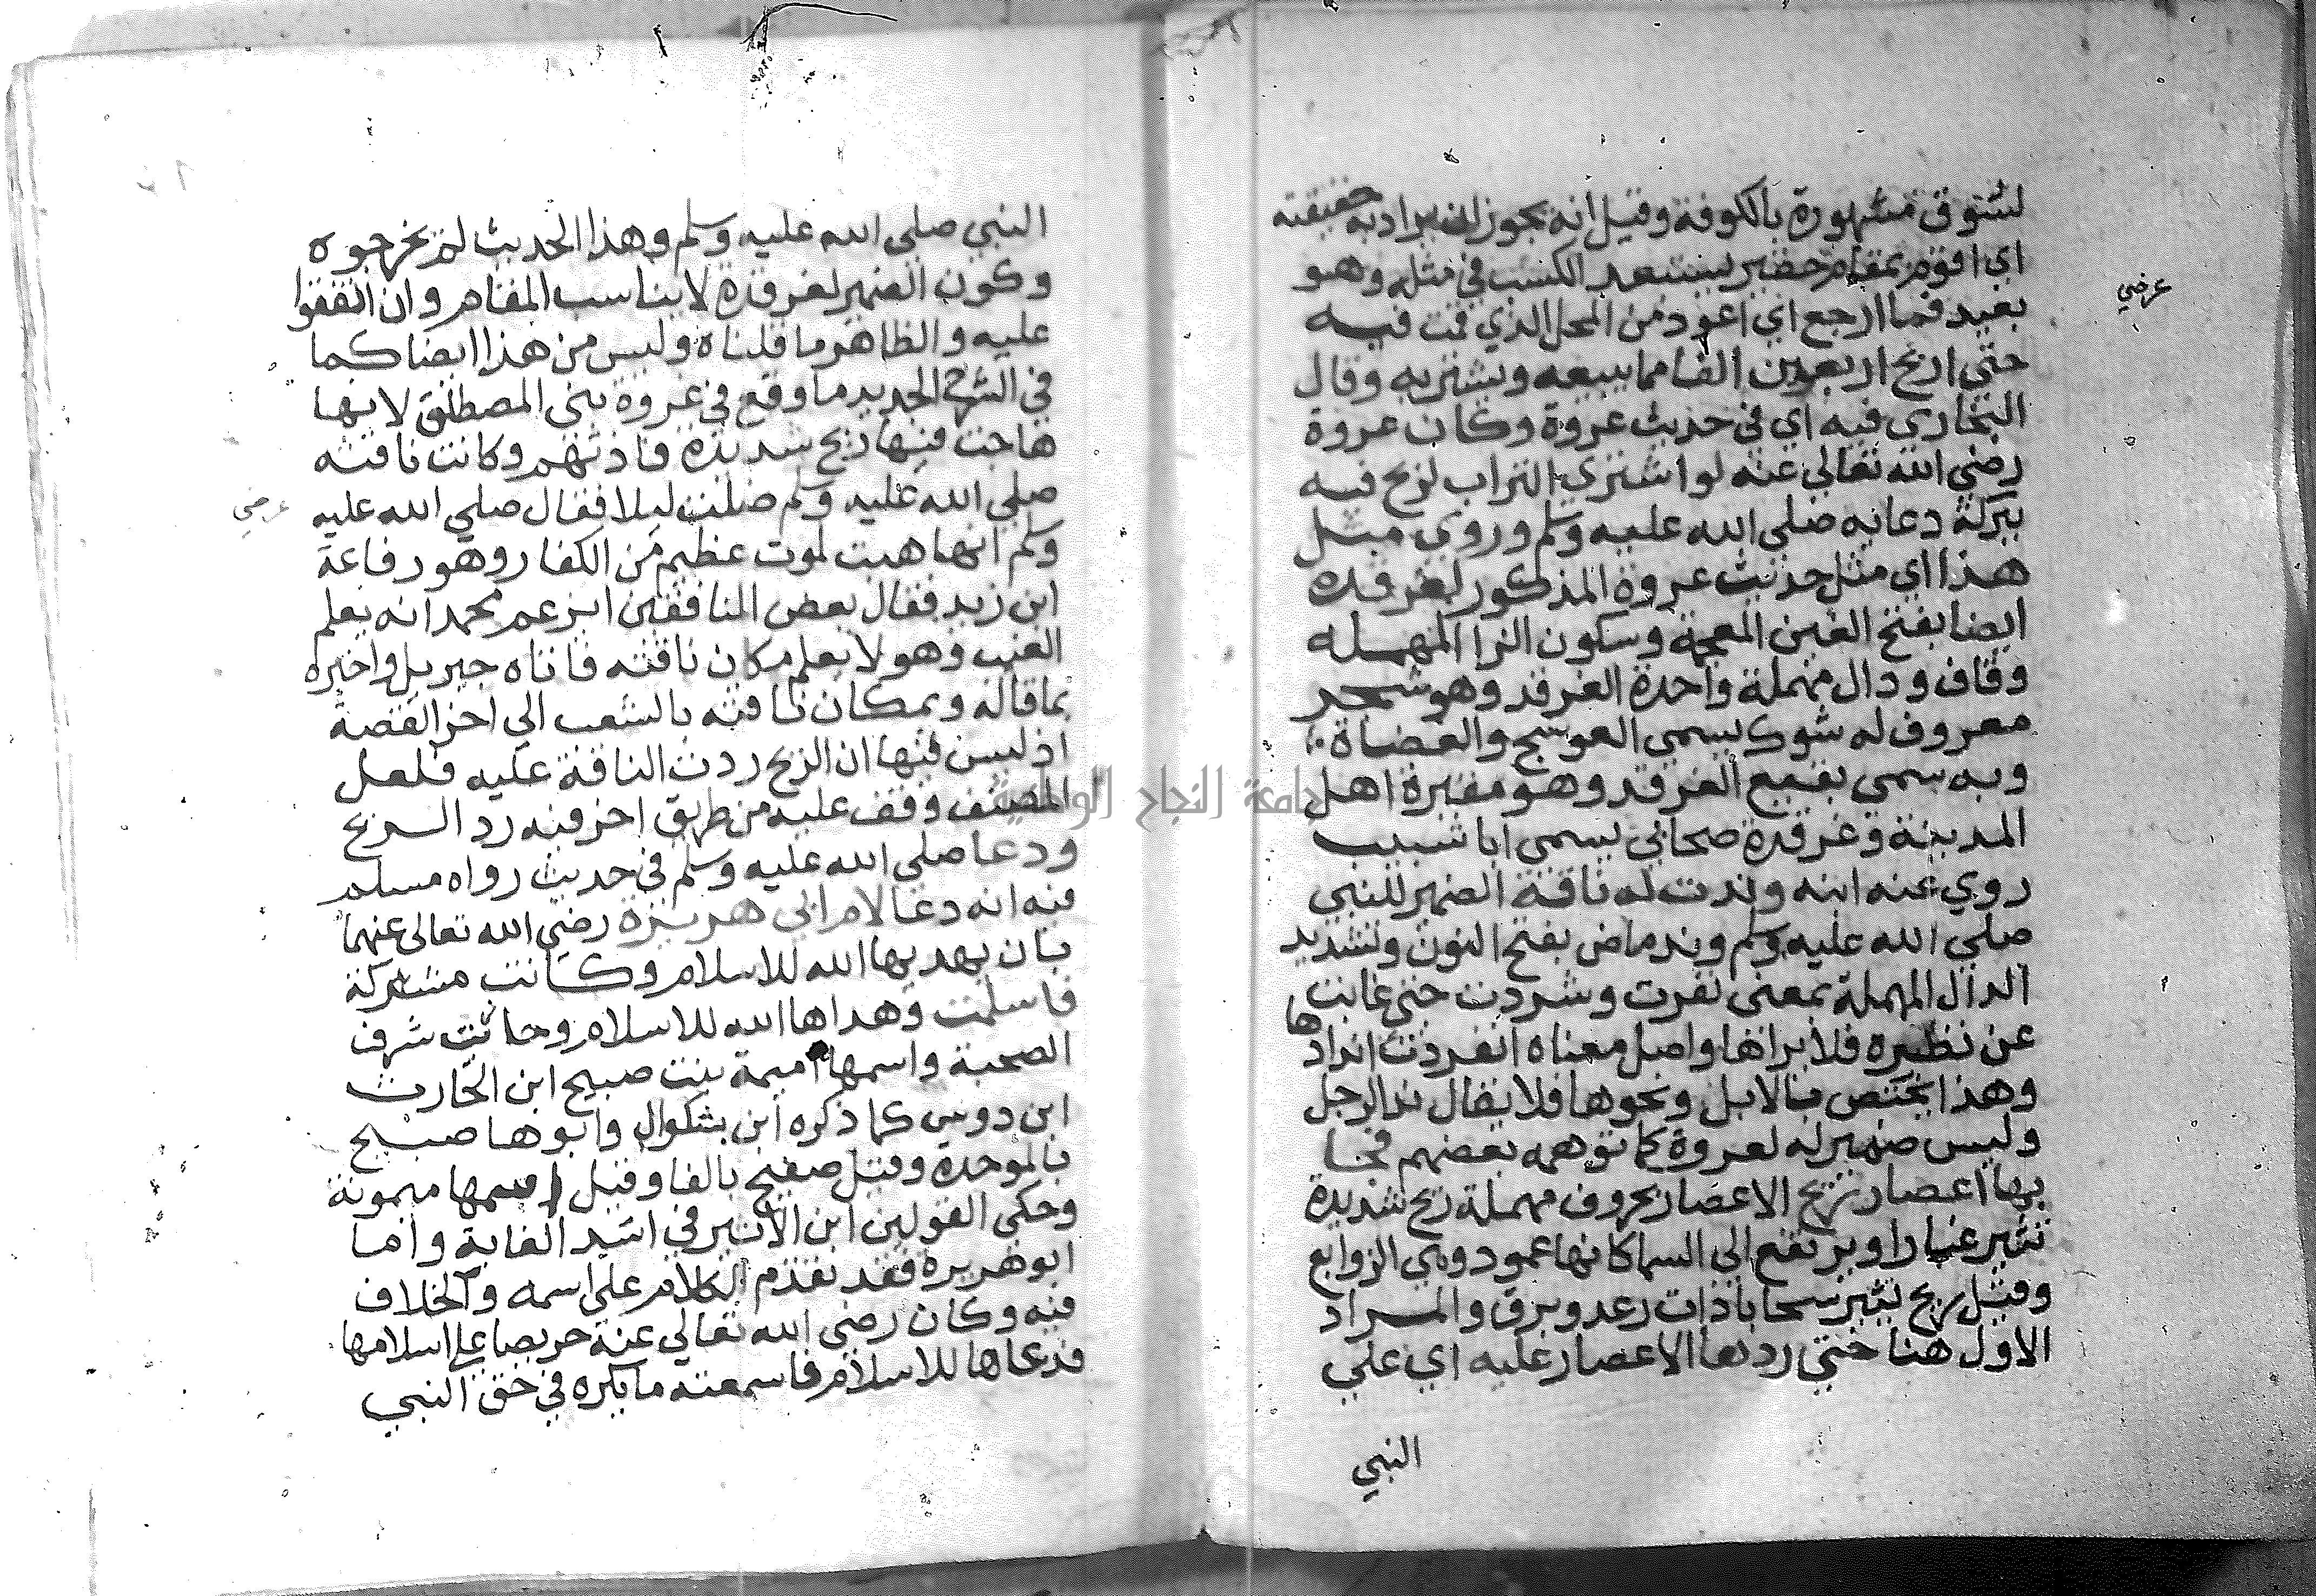 لسوق مشهورة بالكوفة وقيل انه يجوز ان يراد به حقيقته
اي اقوم بمقام حقير يستبعد الكسب في مثله وهو
عرضي
بعيد فما ارجع اي اعود من المحل الذي قمت فيه
حتى اربح اربعين الفا مما يبيعه ويشتريه وقال
البخاري فيه اي في حديث عروة وكان عروة
رضي الله تعالي عنه لو اشتري التراب لربح فيه
ببركة دعائه صلي الله عليه وسلم وروي مثل
هذا اي مثل حديث عروة المذكور لغرقدة
ايضا بفتح الغين المعجمة وسكون الرا المهملة
وقاف ودال مهملة واحدة الغرقد وهو شجر
معروف له شوك يسمي العوسج والعضاة
وبه سمي بقيع الغرقد وهو مقبرة اهل
المدينة وغرقدة صحابي يسمي ابا شبيب
روي عنه ابنه وندت له ناقة الضمير للنبي
صلي الله عليه وسلم وند ماض بفتح النون وتشديد
الدال المهملة بمعني نفرت وشردت حتي غابت
عن نظيره فلا يراها واصل معناه انفردت اندادها
وهذا يختص بالابل ونحوها فلا يقال ند الرجل
وليس ضمير له لعروة كما توهمه بعضهم فجا
بها اعصار ريح الاعصار بحروف مهملة ريح شديدة
تثير غبارا ويرتفع الي السما كانها عمود وهي الزوابع
وقيل ريح تثير سحابا ذات رعد وبرق والمراد
الاول هنا حتي ردتها الاعصار عليه اي علي
النبي
النبي صلي الله عليه وسلم وهذا الحديث لم يخرجوه
وكون الضمير لغرقدة لا يناسب المقام وان اتفقوا
عليه والظاهر ما قلناه وليس من هذا ايضا كما
في الشرح الجديد ما وقع في غزوة بني المصطلق لانها
هاجت فيها ريح شديدة فاذتهم وكانت ناقته
صلي الله عليه وسلم ضلت ليلا فقال صلي الله عليه
عرضي
وسلم انها هبت لموت عظيم من الكفار وهو رفاعة
ابن زيد فقال بعض المنافقين ايزعم محمد انه يعلم
الغيب وهو لا يعلم مكان ناقته فاتاه جبريل واخبره
بما قاله وبمكان ناقته بالشعب الي اخر القصة
اذ ليس فيها ان الريح ردت الناقة عليه فلعل
المصنف وقف عليه من طريق اخر فيه رد الريح
ودعا صلي الله عليه وسلم في حديث رواه مسلم
فيه انه دعا لام ابي هريرة رضي الله تعالي عنهما
بان يهديها الله للاسلام وكانت مشركة
فاسلمت وهداها الله للاسلام وحازت شرف
الصحبة واسمها اميمة بنت صبيح ابن الحارث
ابن دوس كما ذكره ابن بشكوال وابوها صبيح
بالموحدة وقيل صفيح بالفا وقيل اسمها ميمونة
وحكي القولين ابن الاثير في اسد الغابة واما
ابو هريرة فقد تقدم الكلام علي اسمه والخلاف
فيه وكان رضي الله تعالي عنه حريصا علي اسلامها
فدعاها للاسلام فاسمعته ما يكره في حق النبي
جامعة النجاح الوطنية